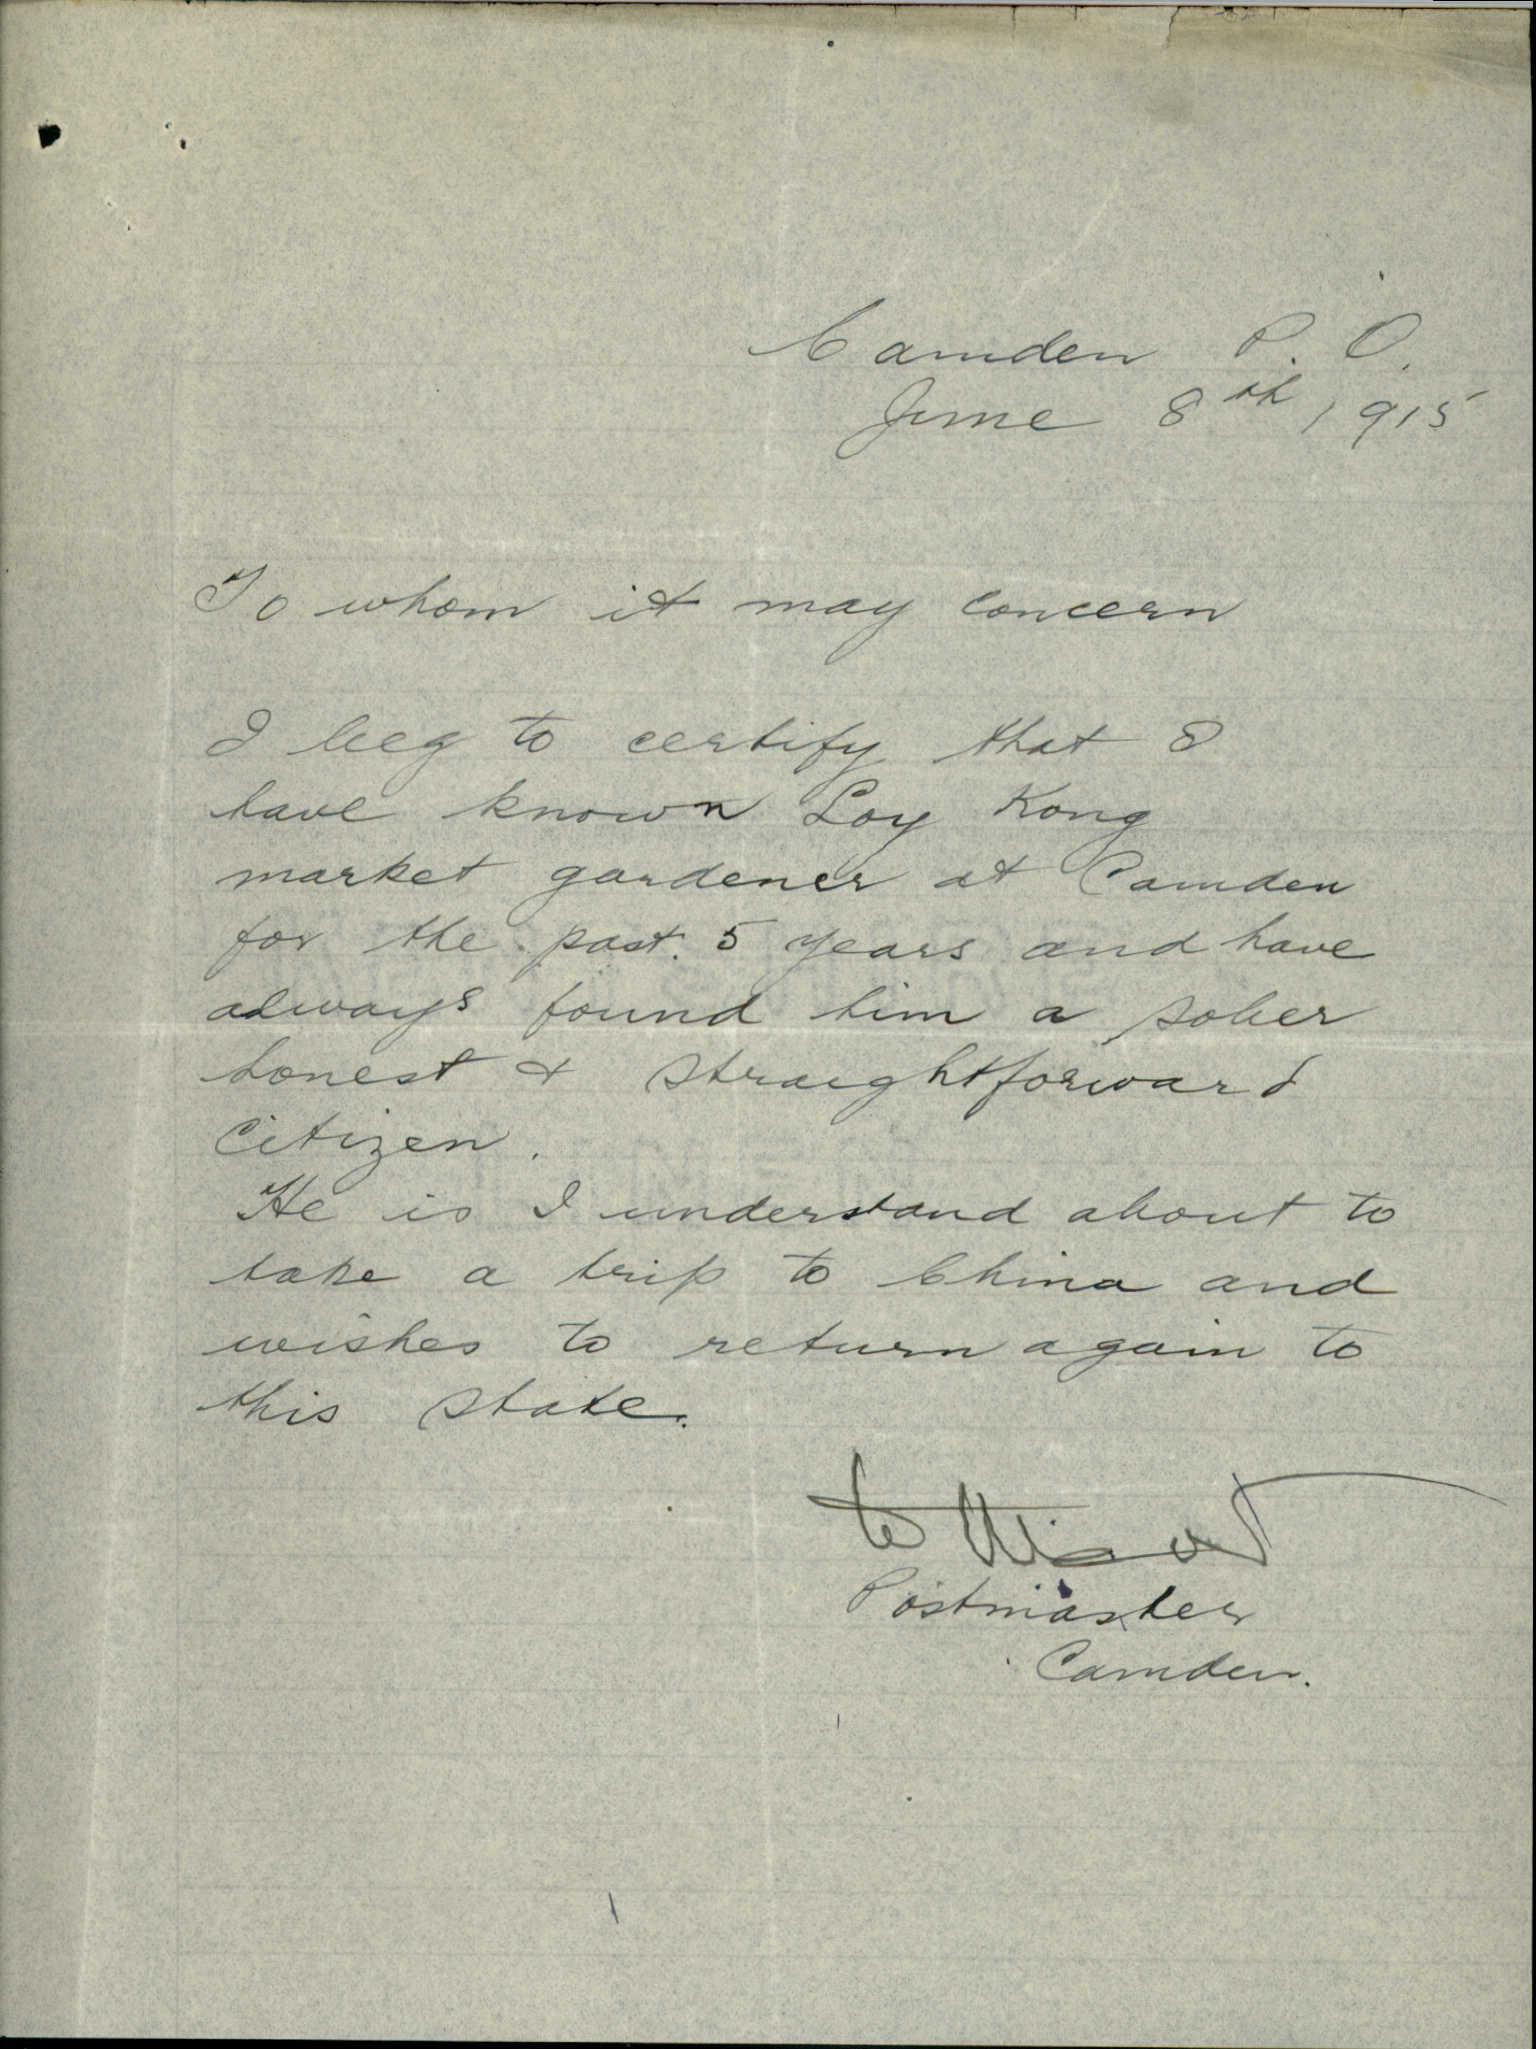 Camden P. O.
June 8th 1915
To whom it may concern
I beg to certify that I
have known Loy Kong
market gardener at Camden
for the past. 5 years and have
always found him a sober
honest & straightforward
Citizen.
He is I understand about to
take a trip to China and
wishes to return again to
this state.
Postmaster
Camden.